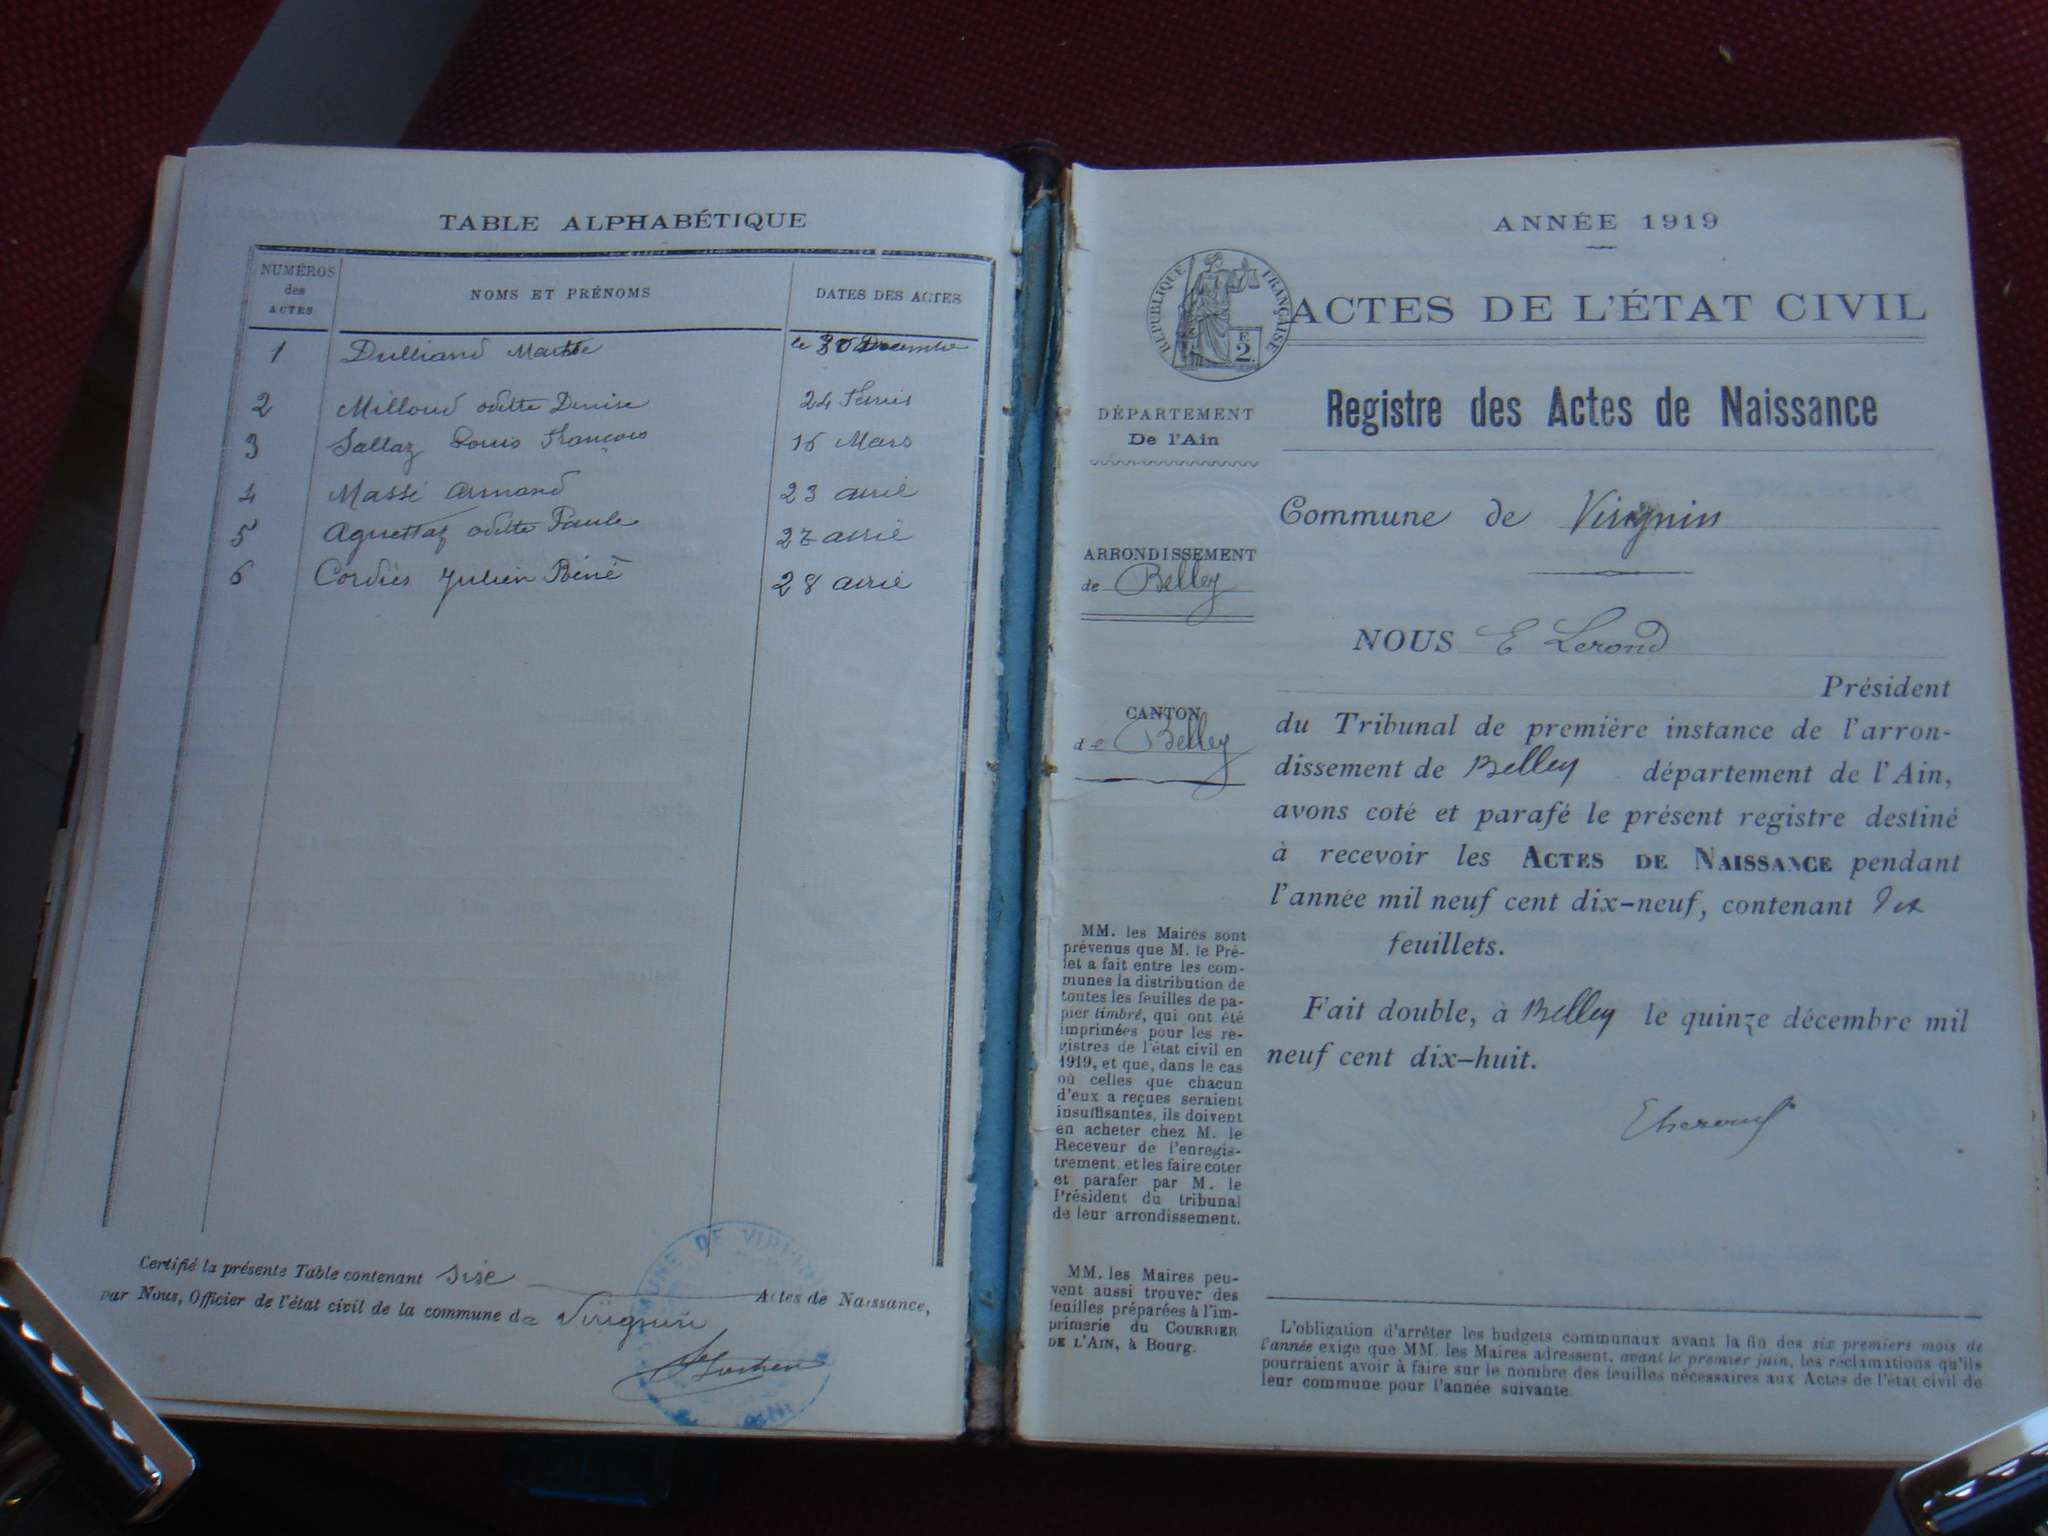 TABLE ALPHABÉTIQUE
NUMÉROS des ACTES
NOMS ET PRÉNOMS
DATES DES ACTES
1 Dulliand Marthe le 30 Décembre
2 Milloud odette Denise 24 Février
3 Sallaz Louis François 15 Mars
4 Massé armand 23 avril
5 Aguettaz odette Paule 27 avril
6 Cordier Julien Réné 28 avril
Certifié la présente Table contenant sise Actes de Naissance,
par Nous, Officier de l'état civil de la commune de Virignin
COMMUNE DE VIRIGNIN
AIN
ANNÉE 1919
RÉPUBLIQUE FRANÇAISE
E
2
ACTES DE L'ÉTAT CIVIL
Registre des Actes de Naissance
DÉPARTEMENT
De l'Ain
Commune de Virignin
ARRONDISSEMENT
de Belley
NOUS E Lerond
Président
CANTON
de Belley
du Tribunal de première instance de l'arron-
dissement de Belley département de l'Ain,
avons coté et parafé le présent registre destiné
à recevoir les ACTES DE NAISSANCE pendant
l'année mil neuf cent dix-neuf, contenant dix
feuillets.
Fait double, à Belley le quinze décembre mil
neuf cent dix-huit.
ELerond
MM. les Maires sont
prévenus que M. le Pré-
fet a fait entre les com-
munes la distribution de
toutes les feuilles de pa-
pier timbré, qui ont été
imprimées pour les re-
gistres de l'état civil en
1919, et que, dans le cas
où celles que chacun
d'eux a reçues seraient
insuffisantes, ils doivent
en acheter chez M. le
Receveur de l'enregis-
trement, et les faire coter
et parafer par M. le
Président du tribunal
de leur arrondissement.
MM. les Maires peu-
vent aussi trouver des
feuilles préparées à l'im-
primerie du COURRIER
DE L'AIN, à Bourg.
L'obligation d'arrêter les budgets communaux avant la fin des six premiers mois de
l'année exige que MM. les Maires adressent, avant le premier juin, les réclamations qu'ils
pourraient avoir à faire sur le nombre des feuilles nécessaires aux Actes de l'état civil de
leur commune pour l'année suivante.